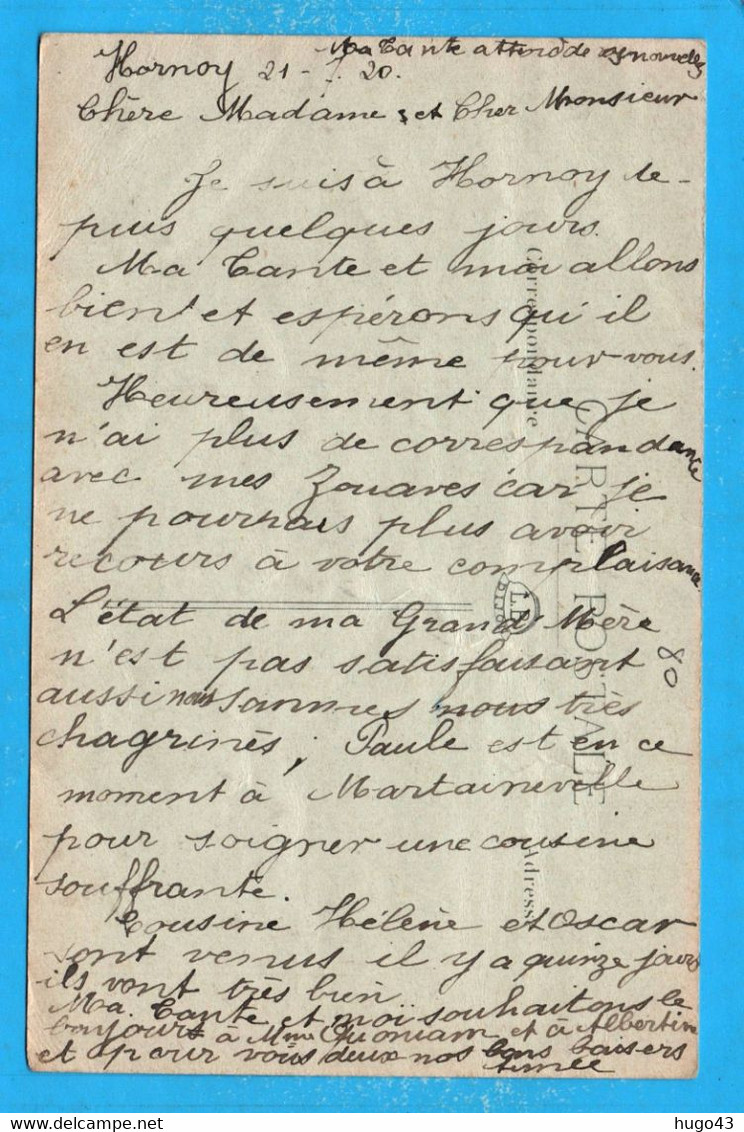 Ma Tante attend de vos nouvelles
Hornoy 21-7.20.
Chère Madame et Cher Monsieur
Je suis à Hornoy de-
puis quelques jours.
Ma Tante et moi allons
bien et espérons qu'il
en est de même pour vous.
Heureusement que je
n'ai plus de correspondante
avec mes Zouaves car je
ne pourrais plus avoir
recours à votre complaisance
L'état de ma Grand Mère
n'est pas satisfaisant
aussi nous sommes nous très
chagrinés; Paule est en ce
moment à Martainneville
pour soigner une cousine
souffrante.
Cousine Hélène et Oscar
sont venus il y a quinze jours
ils vont très bien
Ma Tante et moi souhaitons le
bonjour à Mme Quoniam et à Albertine
et pour vous deux nos bons baisers
80
CARTE POSTALE
Correspondance
Adresse
L.D.
DIJON
hugo43